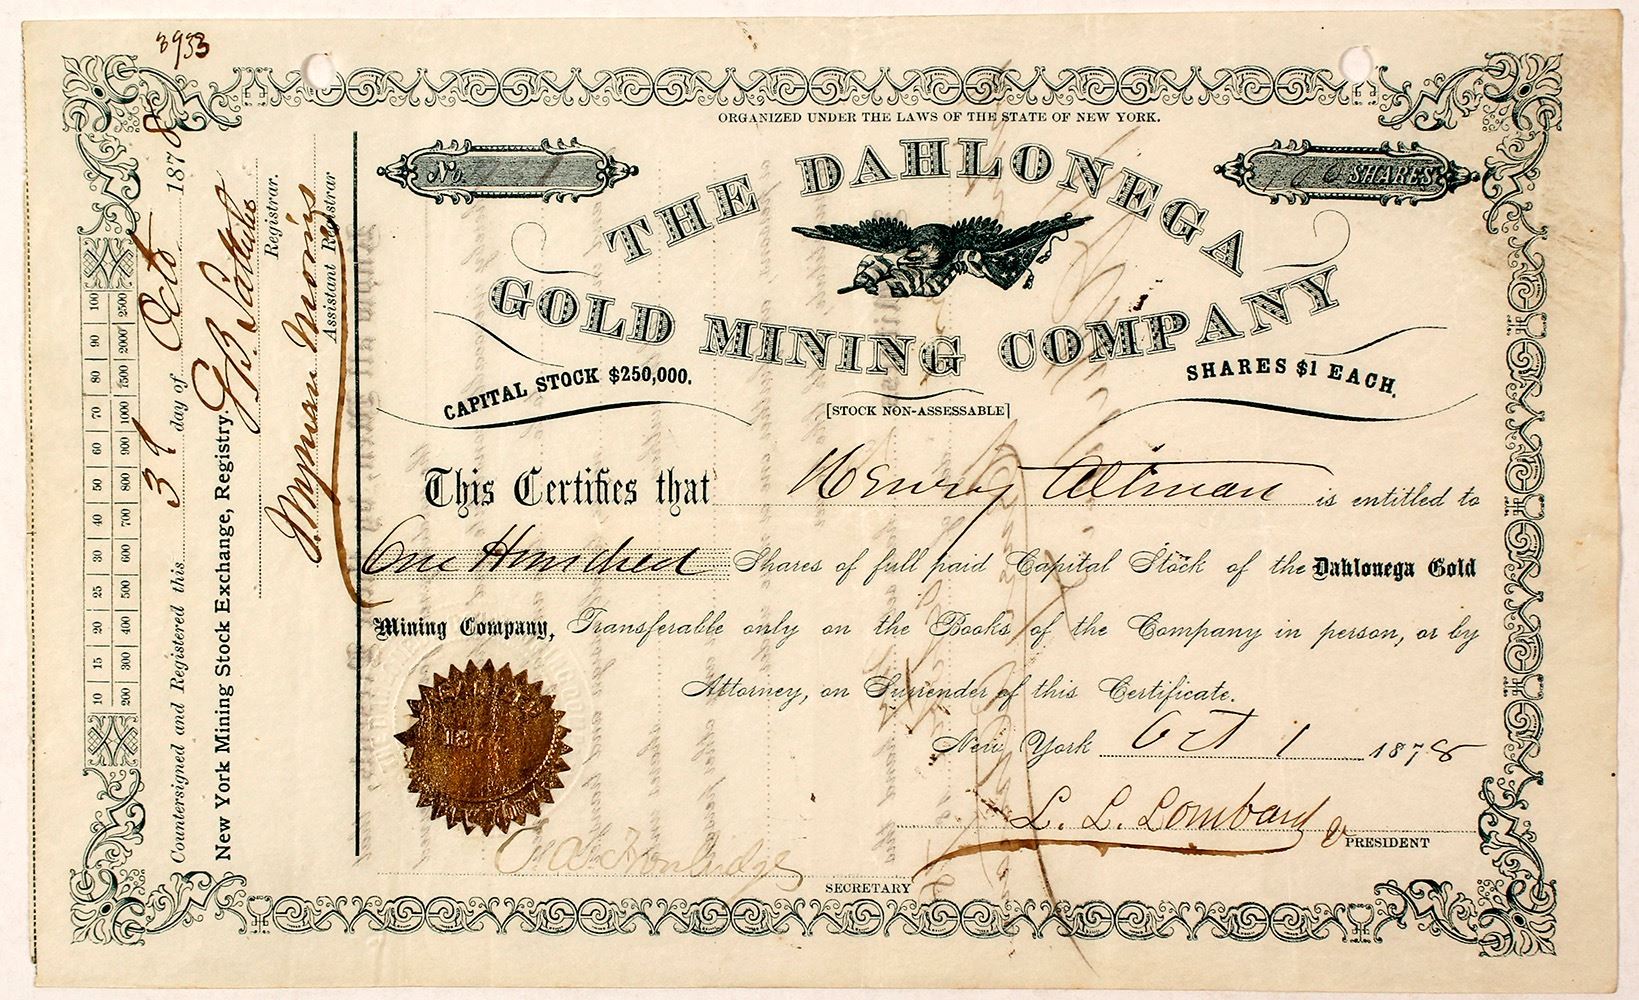 8933
ORGANIZED UNDER THE LAWS OF THE STATE OF NEW YORK.
No.
100 SHARES
THE DAHLONEGA
GOLD MINING COMPANY
CAPITAL STOCK $250,000.
SHARES $1 EACH.
[STOCK NON-ASSESSABLE]
This Certifies that Henry Altman is entitled to
One Hundred Shares of full paid Capital Stock of the Dahlonega Gold
Mining Company, Transferable only on the Books of the Company in person, or by
Attorney, on Surrender of this Certificate.
New York Oct 1 1878
L. L. Lombard
PRESIDENT
SECRETARY
10 15 20 25 30 40 50 60 70 80 90 100
200 300 400 500 600 700 800 900 1000 1500 2000 2500
Countersigned and Registered this 3d day of Octo 1878
New York Mining Stock Exchange, Registry.
G. B.
Registrar.
Wyman Morris
Assistant Registrar